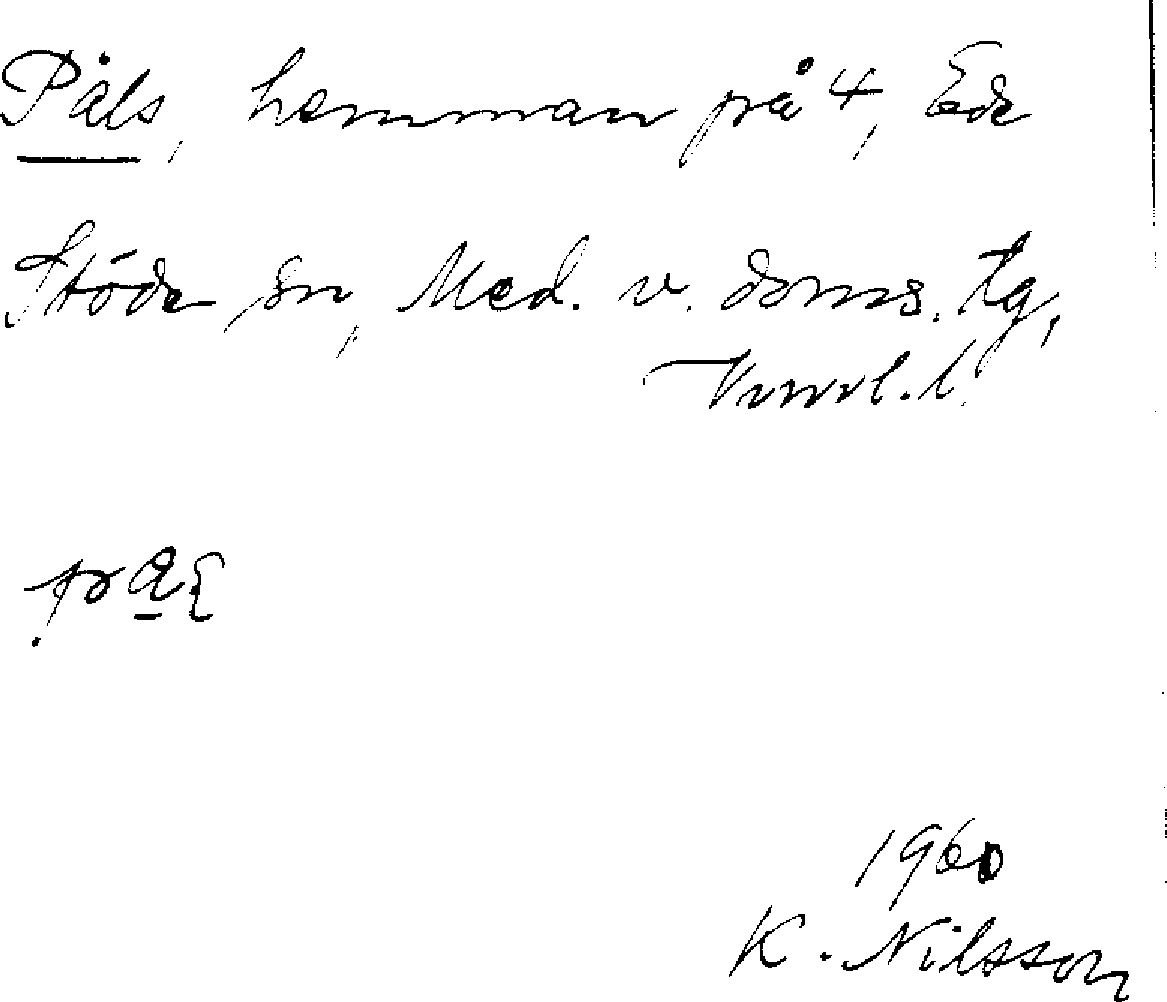 Påls, hemman på 4, Ede
Stöde sn, Med. v. doms. tg,
Vnorl. l.
1960
K. Nilsson